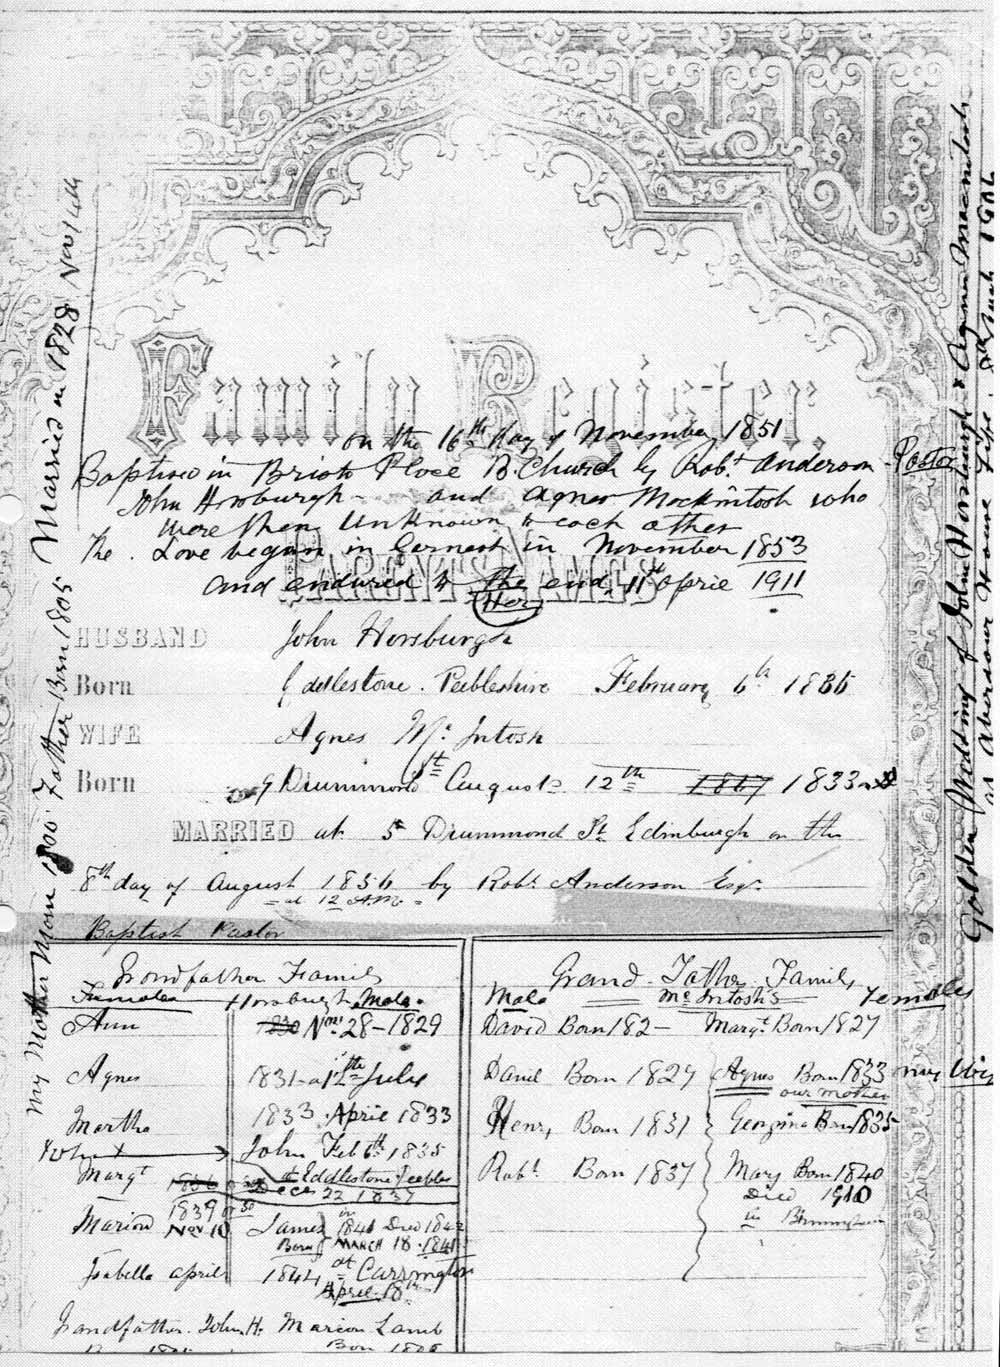 Family Register.
on the 16th day of November 1851
Baptised in Bristo Place B. Church by Robt Anderson - Pastor
John Horsburgh - and Agnes Mackintosh who
were then Unknown to each other
The Love began in Earnest in November 1853
and endured to the end, 11th April 1911
Her
PARENTS NAMES
HUSBAND John Horsburgh
Born Eddlestone. Peebleshire February 6th 1835
WIFE Agnes Mc Intosh
Born 9 Drummond St August 12th 1837 1833
MARRIED at 5 Drummond St Edinburgh on the
8th day of August 1856 by Robt Anderson Esqr
at 12 A.M.
Baptist Pastor
Grandfather Family
Females Horsburgh Male.
Ann 1830 Nov 28 - 1829
Agnes 1831 - 12th July
Martha 1833. April 1833
John X John Feb 6th 1835
at Eddlestone Peebles
Margt 1836 Dece 22 1837
1839
Marion Nov 10 James in 1840 Died 1842
Born MARCH 18. 1841
at Carrington
Isabella april 1844
April. 18th
Grandfather. John H. Marion Lamb
Born 1805 Born 1805
Grand-Father Family
Male Mc Intosh's Females
David Born 182- Margt Born 1827
Daniel Born 1827 Agnes Born 1833 my Wife
our mother
Henry Born 1831 Georgina Born 1835
Robt. Born 1837 Mary Born 1840
Died 1910
in Birmingham
My Mother Born 1800 Father Born 1805 Married in 1828 Nov 14th
Golden Wedding of John Horsburgh & Agnes Macintosh
at Aberdour House Fife.